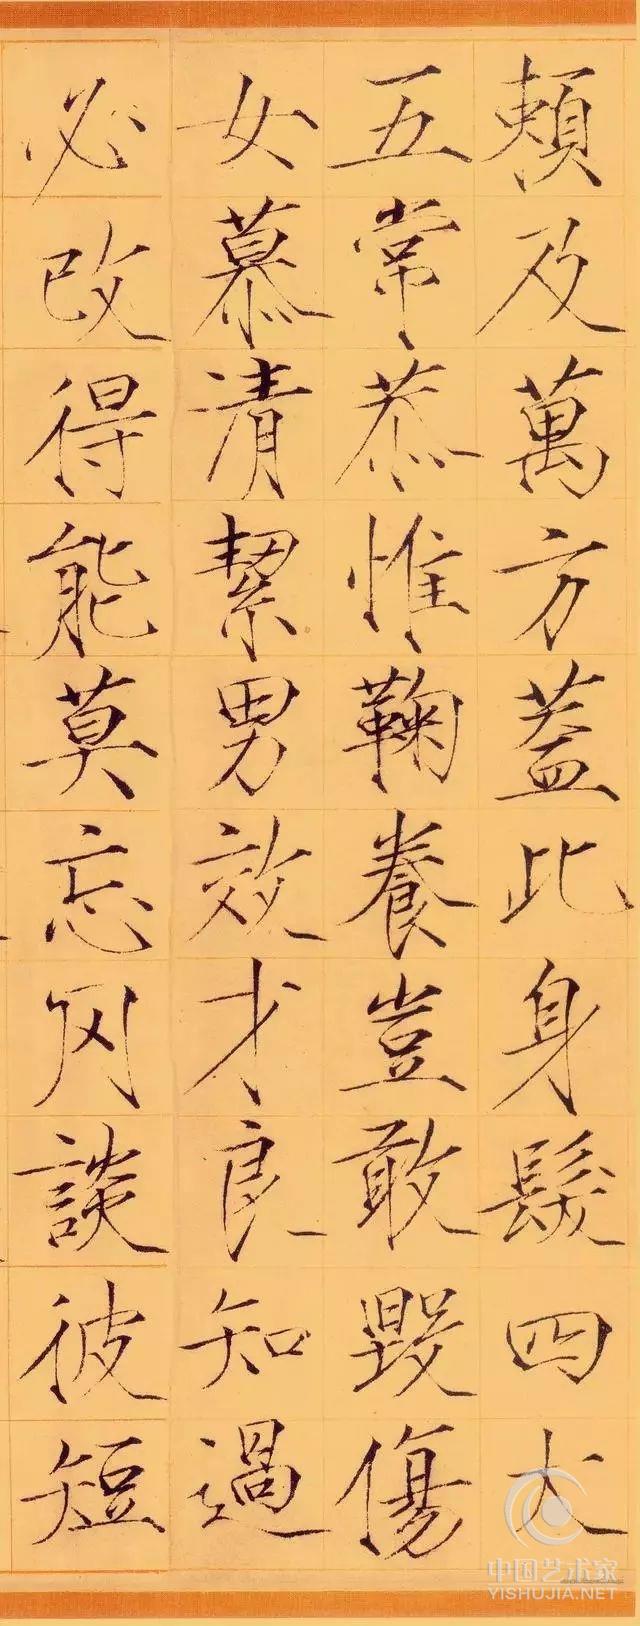 頼及萬方蓋此身髮四大
五常恭惟鞠養豈敢毀傷
女慕清絜男效才良知過
必改得能莫忘罔談彼短
中国艺术家
YISHUJIA.NET